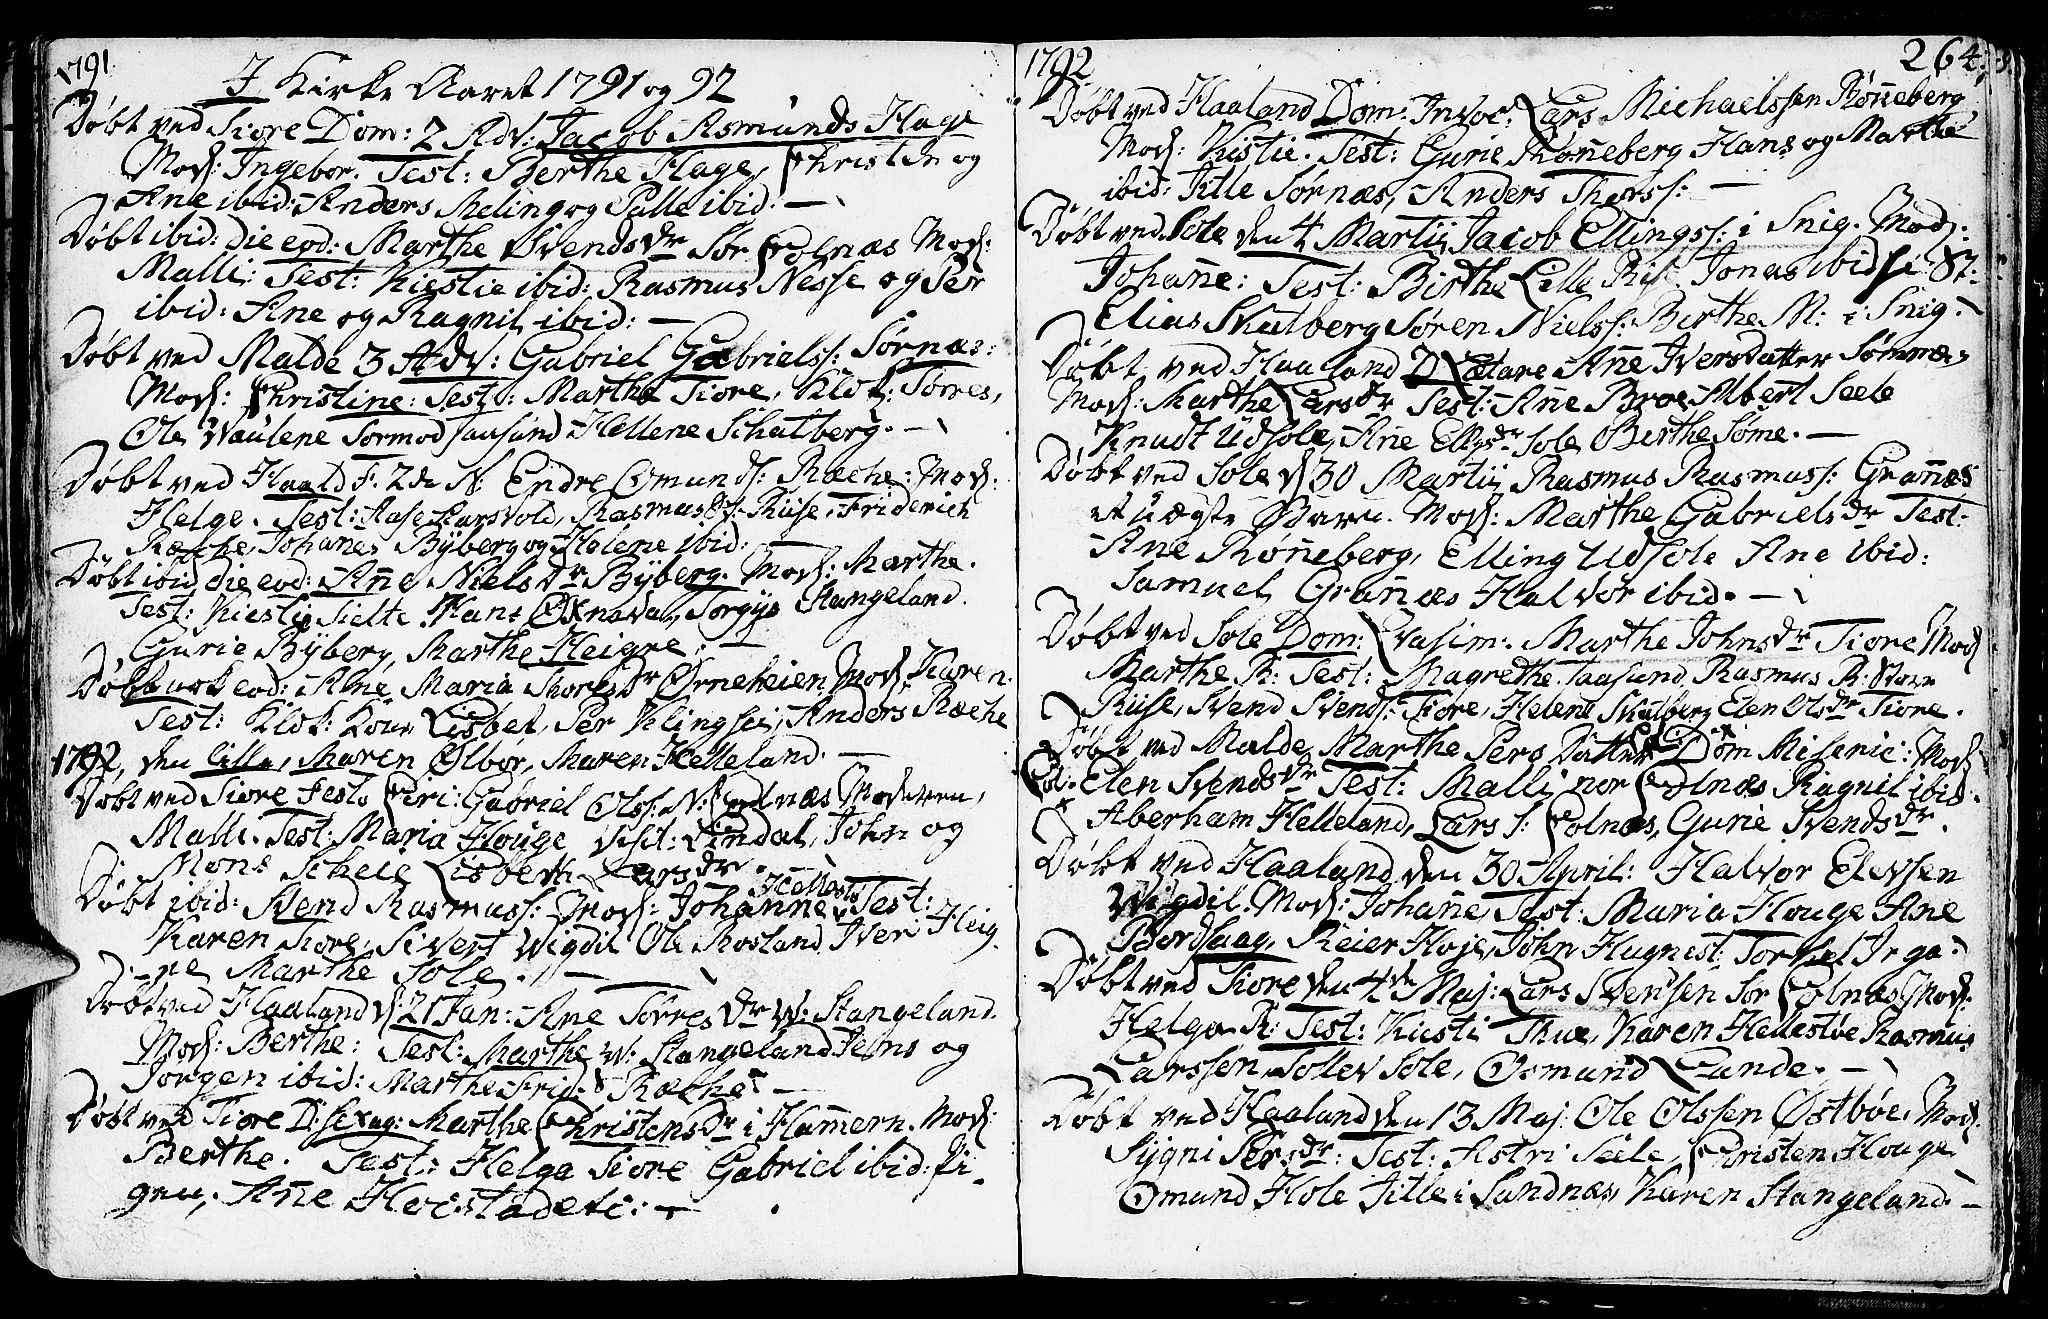 1791.
I Kirke Aaret 1791 og 92
Døbt ved Tiore Dom: 2 Adv: Jacob Asmunds Hage
Mod: Ingebor. Test: Berthe Hage, Christen og
Ane ibid: Anders Meling og Palle ibid. —
Døbt ibid: die eod: Marthe Svends dr Sør Solnæs Mod:
Malli: Test: Kiestie ibid: Rasmus Nesse og Per
ibid: Ane og Ragnil ibid: —
Døbt ved Malde 3 Adv: Gabriel Gabriels: Sørnæs:
Mod: Christine: Test: Marthe Tiore, Klok: Torres,
Ole Waulene Tormod Taasund Hellene Schatberg. —
Døbt ved Haald F. 2 de N: Endre Omunds: Ræche: Mod:
Helge. Test: Aase Harsvold, Rasmus St: Riise, Friderich
Ræche, Johanes Byberg og Helene ibid: —
Døbt ibid die eod: Ane Niels dr Byberg. Mod: Marthe.
Test: Kiestie Sielte Hans Øxnevad, Torgys Stangeland.
Gurie Byberg, Marthe Heigre. —
Døbt eod: Ane Maria Thores dr Ørneheien Mod: Karen.
Test: Klok: Kone Lisbet, Per Klingsei, Anders Ræche
1792, den lille, Maren Ølbør, Maren Helleland. —
Døbt ved Tiore Fest Ciri: Gabriel Ols: N: Solnæs Moderen,
Malli. Test: Maria Houge Lindal, John og
Mons Scheie Lisbeth Lars dr.
Døbt ibid: Svend Rasmuss: Mod: Johanne Hellestø Test:
Karen Tiore, Sivert Wigdil Ole Rosland Iver Heig
re Marthe Sole. —
Døbt ved Haaland d: 21 Jan: Ane Torres dr W. Stangeland.
Mod: Berthe: Test: Marthe W: Stangeland Jens og
Jorgen ibid: Marthe Frid: Ræche —
Døbt ved Tiore D: Sexag: Marthe Christens dr i Hamern. Mod:
Berthe. Test: Helga Tiore Gabriel ibid: Pi-
gen, Ane Heistadeti: —
1792
264.
Døbt ved Haaland Dom: Invoc: Lars Michaelssen Rønneberg
Mod: Kistie. Test: Gurie Rønneberg Hans og Marthe
ibid: Title Sørnæs, Anders Thorss: —
Døbt ved Sole den 4 Martij Jacob Ellingss: i Snig. Mod:
Johane: Test: Birthe Lille Rise Jonas ibid i St:
Elias Skatberg Søren Nielss: Berthe N: i Snig.
Døbt ved Haaland D Lætare Ane Iversdatter Sømme
Mod: Marthe Lars dr Test: Ane Broe Albert Seele
Knudt Udsole, Ane Ellgs dr Sole Berthe Søme. —
Døbt ved Sole d 30 Martij Rasmus Rasmuss: Granæs
et uægte Barn. Mod: Marthe Gabriels dr Test:
Ane Rønneberg, Elling Udsole Ane ibid:
Samuel Granæs Halvor ibid. —
Døbt ved Sole Dom: Qvasim: Marthe Johns dr Tiore Mod
Marthe R: Test: Magrethe Taasund Rasmus R: Store
Riise, Svend Svends: Tiore, Helene Skatberg Elen Ols dr Tiore.
Døbt ved Malde Marthe Pers Datter Dom Miseric: Mod
Elen Svends dr Test: Malli nor Solnæs Ragnil ibid.
Aberham Helleland, Lars s: Solnæs, Gurie Svends dr.
Døbt ved Haaland den 30 April: Halvor Elevsen
Wigdil. Mod: Johane, Test: Maria Houge Ane
Bordsaag, Reier Hoje, John Hugnest: Torkel Irga:
Døbt ved Tiore den 4 de Maj: Lars Svensen Sør Solnæs Mod:
Helga R: Test: Kusti Thue, Karen Hellestøe Rasmus
Larssen, Sollev Sole, Osmund Lunde. —
Døbt ved Haaland den 13 Maj Ole Olssen Østbøe. Mod:
Sygni Pers dr: Test: Astri Seele, Christen Houge
Omund Hole Titlei Sandnæs, Karen Stangeland. —